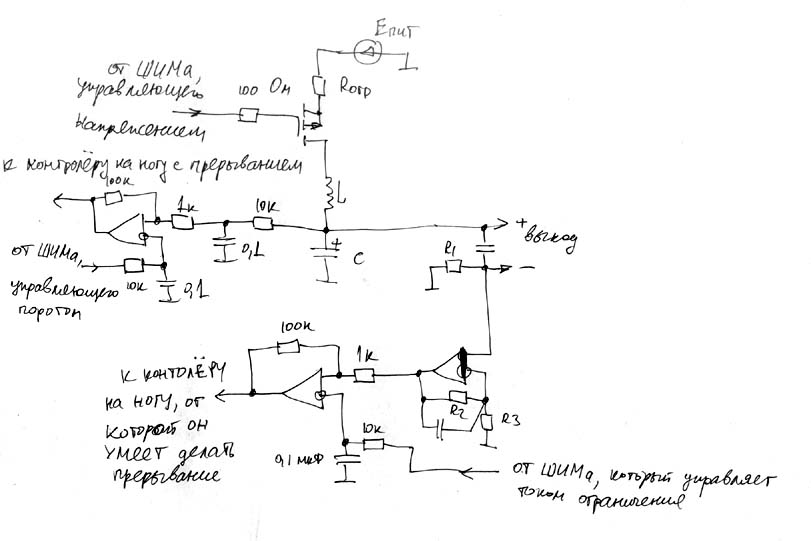 Епит
от ШИМа,
управляющего
100 Ом
Rогр
напряжением
к контролёру на ногу с прерыванием
100к
1к
10к
L
+
0,1
C
+
выход
R1
−
от ШИМа,
управляющего
10к
0,1
порогом
100к
1к
к контолёру
на ногу, от
которой он
умеет делать
прерывание
R2
R3
10к
0,1 мкФ
от ШИМа, который управляет
током ограничения